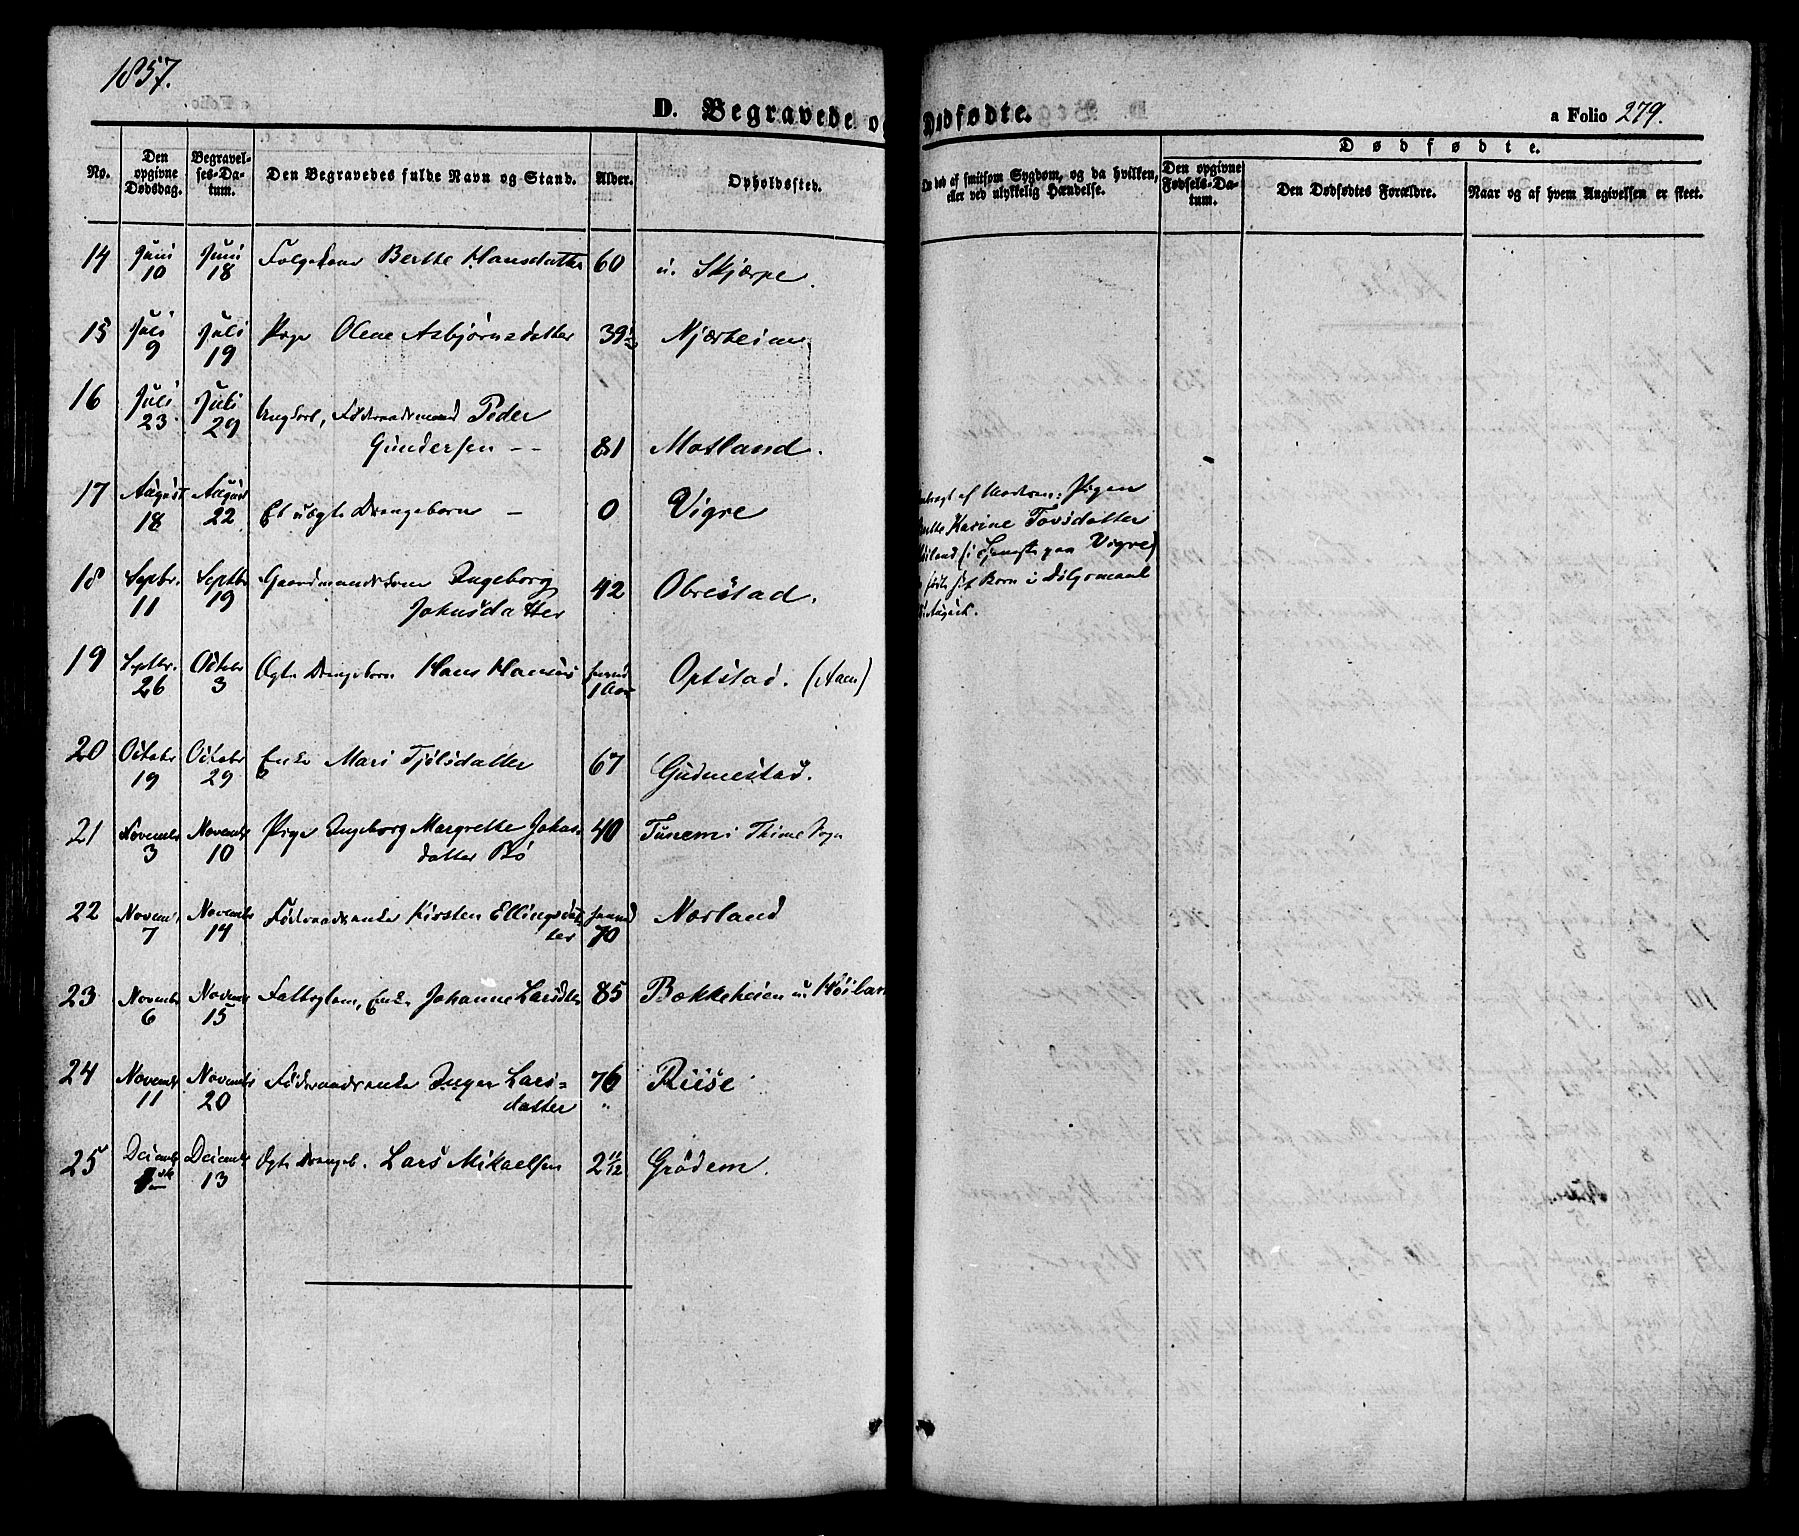 1857.
D. Begravede og Dødfødte.
a Folio 279.
No.
Den opgivne Dødsdag.
Begravelses-Datum.
Den Begravedes fulde Navn og Stand.
Alder.
Opholdssted.
død af smitsom Sygdom, og da hvilken, eller ved ulykkelig Hændelse.
Dødfødte.
Den opgivne Fødsels-Datum.
Den Dødfødtes Forældre.
Naar og af hvem Angivelsen er skeet.
14 Juni 10 Juni 18 Berthe Hansdatter 60 u. Skjærpe.
15 Juli 9 Juli 19 Pige Olene Asbjørnsdatter 39 Njærheim
16 Juli 23 Juli 29 Ungkarl, Føderaadsmand Peder
Gundersen - - 81 Motland.
17 August 18 August 22 Et uægte Drengebarn - 0 Vigre
af Moderen: Pigen
Karine Tovsdatter
(i Tjeneste paa Vigre)
Barn i Dølgsmaal
18 Septbr. 11 Septbr 19 Gaardmandskone Ingeborg
Johnsdatter 42 Obrestad.
19 Septbr. 26 Octobr 3 Ægte Drengebarn Hans Hansen 1 Aar Optstad. (Aam)
20 Octobr 19 Octobr 29 Enke Mari Tjølsdatter 67 Gudmestad.
21 Novembr 3 Novembr 10 Pige Ingeborg Margrethe Johns-
datter Bø 40 Tunem i Thime Sogn
22 Novem. 7 Novembr 14 Føderaadsenke Kirsten Ellingsdat-
ter 70 Nærland
23 Novembr 6 Novembr 15 Fattiglem, Enke Johanne Larsdter 85 Bækkeheien u. Høiland
24 Novembr 11 Novembr 20 Føderaadsenke Inger Lars-
datter 76 Riise
25 Decembr Decembr 13 Ægte Drengeb. Lars Mikaelsen 2 11/12 Grødem.